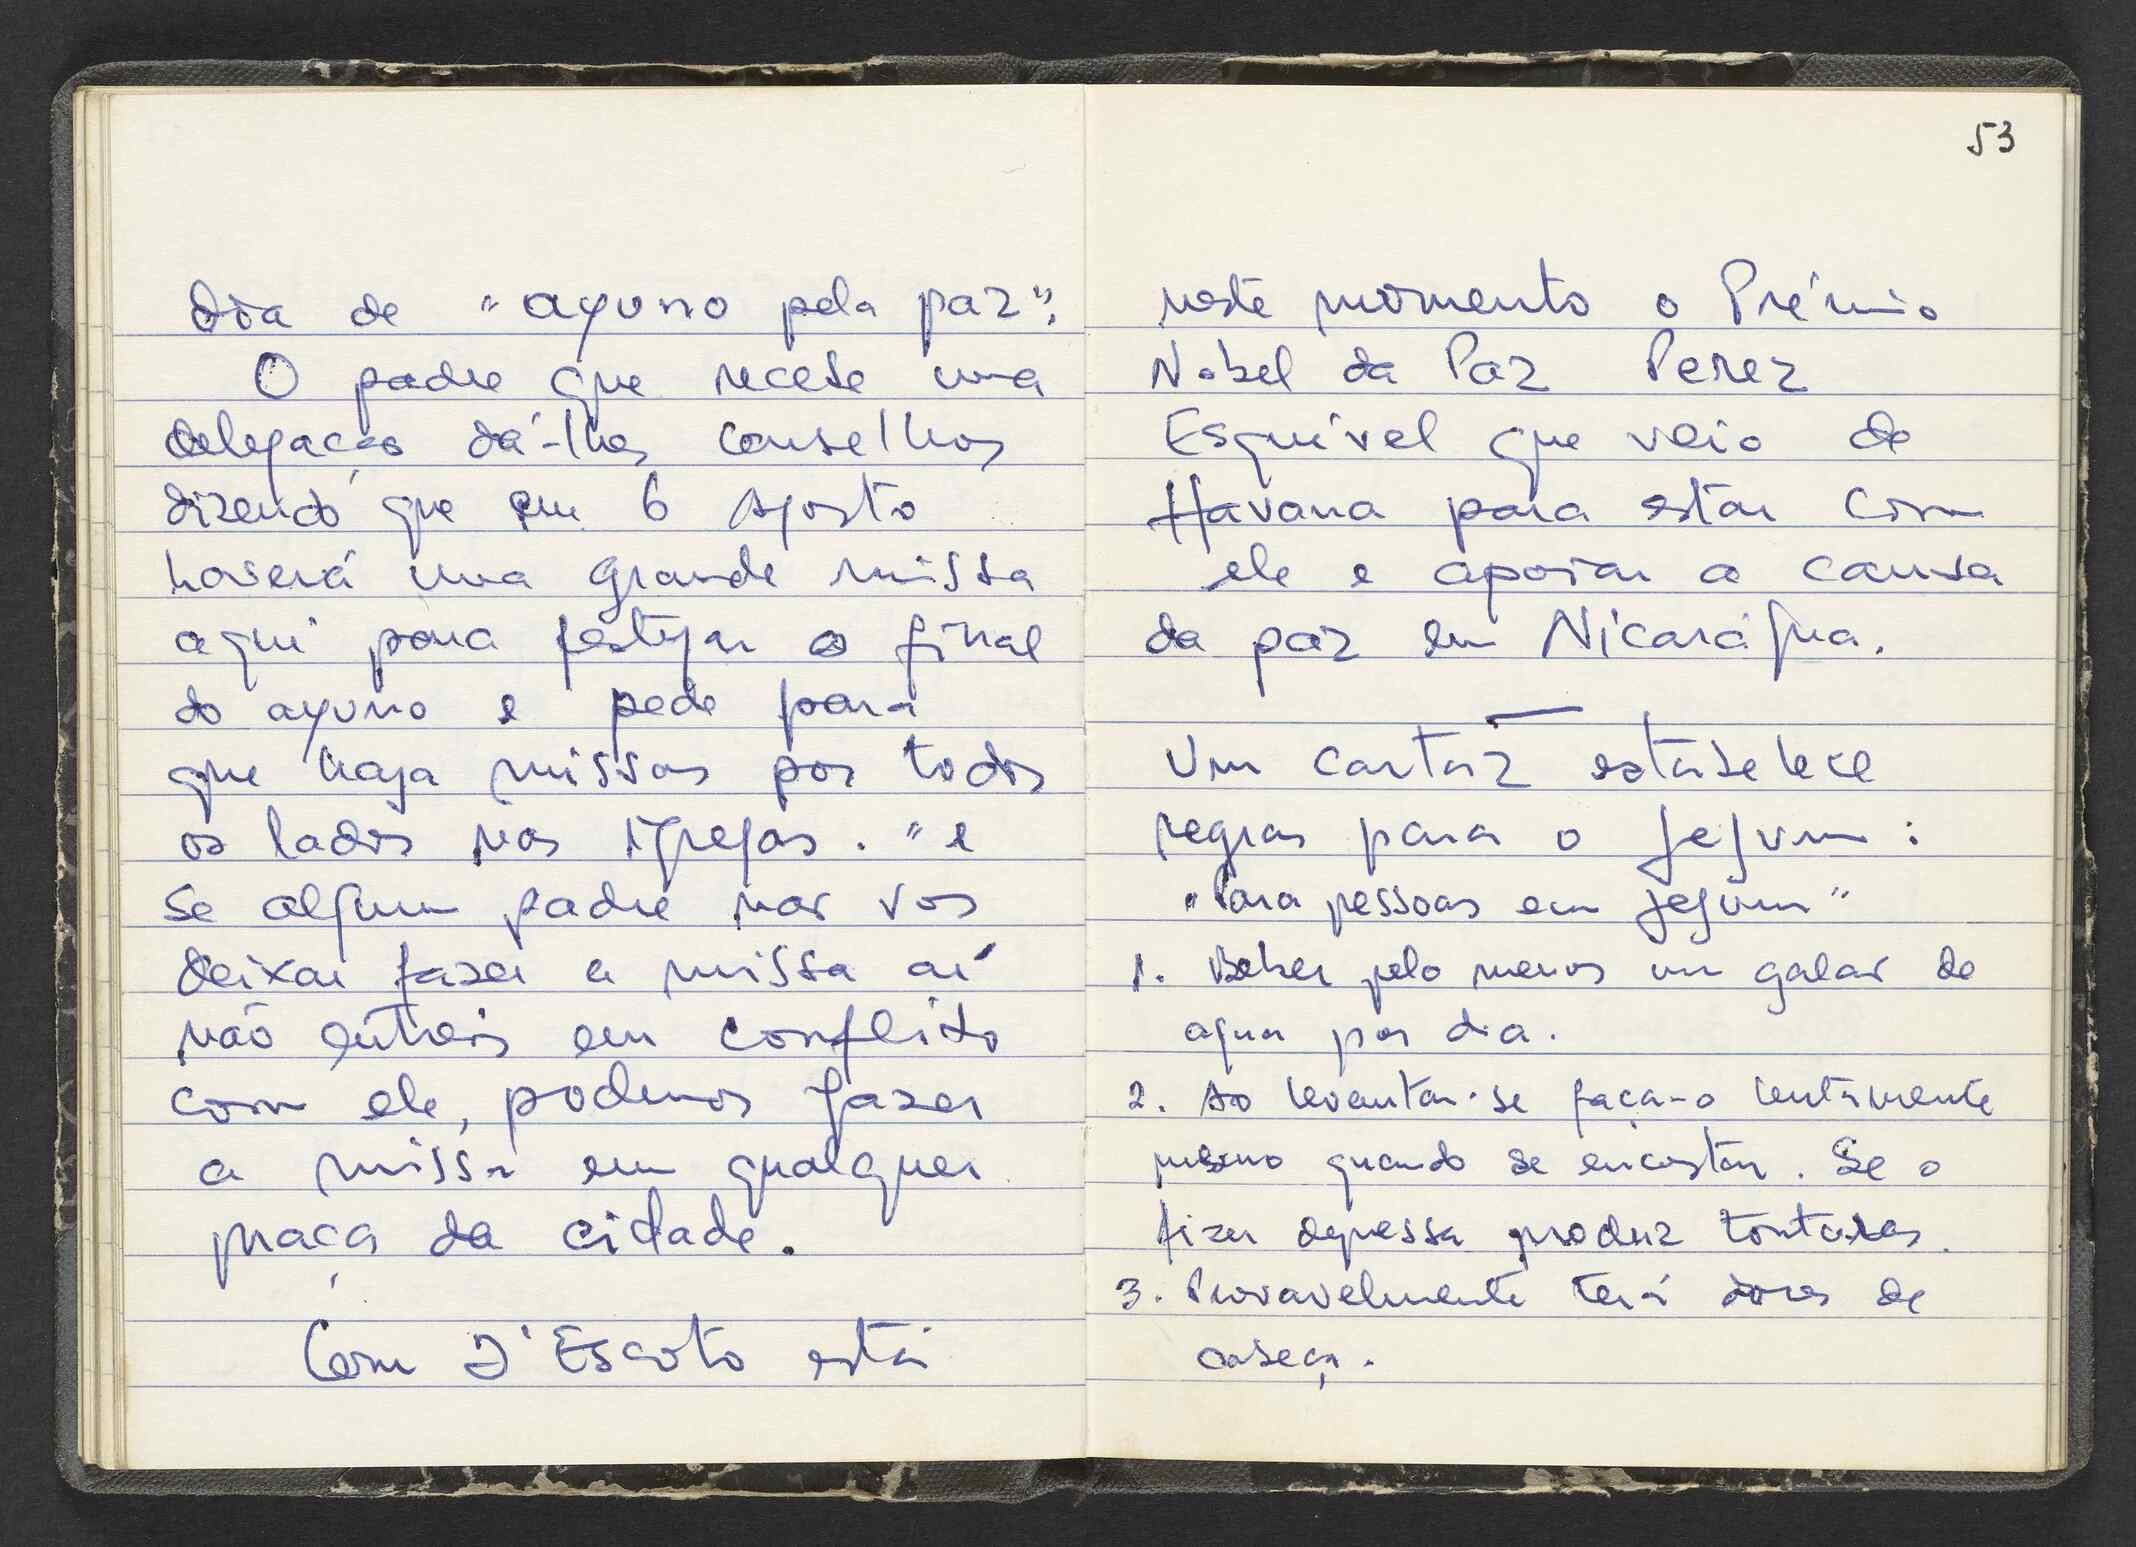 dia de "ayuno pela paz".
O padre que recebe uma
delegação dá-lhes conselhos
dizendo que em 6 Agosto
haverá uma grande missa
aqui para festejar o final
do ayuno e pede para
que haja missas por todos
os lados nas Igrejas. "e
se algum padre não vos
deixar fazer a missa aí
não entreis em conflito
com ele, podemos fazer
a missa em qualquer
praça da cidade.
Com D'Escoto está
53
neste momento o Prémio
Nobel da Paz Perez
Esquível que veio de
Havana para estar com
ele e apoiar a causa
da paz em Nicarágua.
Um cartaz estabelece
regras para o jejum:
"Para pessoas em jejum"
1. Beber pelo menos um galão de
agua por dia.
2. Ao levantar-se faça-o lentamente
mesmo quando se encostar. Se o
fizer depressa produz tonturas.
3. Provavelmente terá dores de
cabeça.